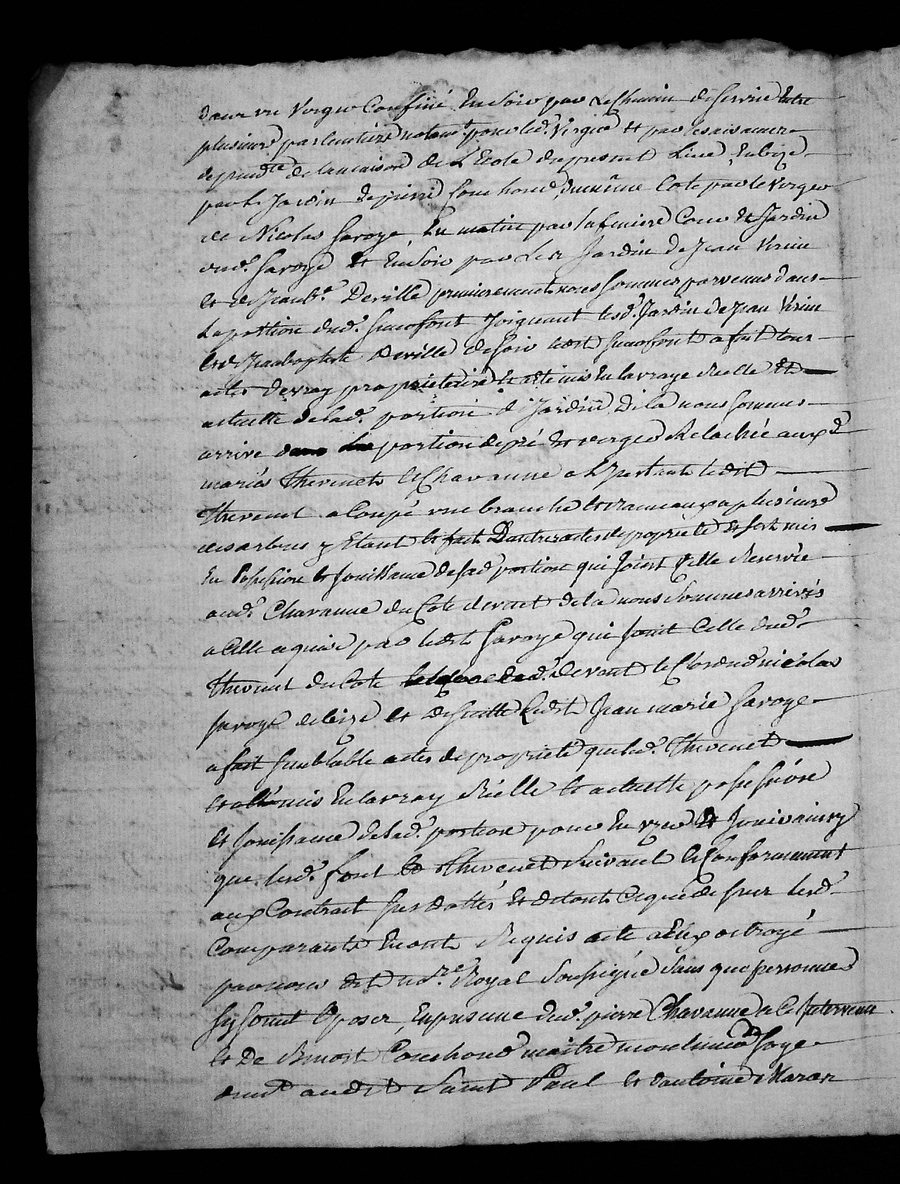 dans un Verger Confiné En Soir par Le Chemin deservire Entre
plusieurs particuliers notam.t pour led. Verger Et par Les aisances
depend.te de la maison de L'Ecole du present Lieu, En bize
par Le Jardin de pierre Couchoud, du même Coté par le Verger
de Nicolas Savoye, En matin par la feniere Cour Et Jardin
dud. Savoye Et En Soir par Les Jardin de Jean Virin
et de Jean b.te Deville premierement nous sommes parvenus dans
La portion dud. Simofont Joignant lesd. Jardin de Jean Virin
Et d Jean baptiste Deville de Soir ledit Simofont a fait tous
actes de vray proprietaire Et a eté mis En la vraye Reelle Et
actuelle de lad. portion de Jardin De la nous sommes
arrivé dans La portion de pré Et verger Relachée aux d.
mariés Thevenet Et Chavanne a L'Instant ledit
Thevenet a Coupé une branche Et rameaux a plusieurs
des arbres y Etant Et fait D'autres actes de propriété Et fort mis
En Possession Et Jouissance de lad. portion qui Joint Celle Reservée
aud. Chavanne du Coté de vent de la nous Sommes arrivés
a Celle aquise par ledit Savoye qui Joint Celle dud.
Thevenet du Coté devent le Clos dud. nicolas
Savoye de bize Et Ledit Jean marie Savoye
a fait Semblable actes de propriété que led. Thevenet
Et a eté mis En la vray Réelle Et actuelle possession
Et Jouissance de lad. portion pour En User Et Jouir ainsy
que lesd. font Et Thevenet Suivant Et Conformement
aux Contrait Sus dattés Et de tout Ce que de Sus lesd.
Comparants En ont Requis acte a Eux octroyé
par nous dit no.re Royal Soussigné Sans que personne
Sy Soint Oposer, En presence dud. pierre Chavanne a Ce Intervenu
Et De Benoit Couchoud maitre moulinier Soye
dem.t audit Saint Paul Et d'antoine Maran